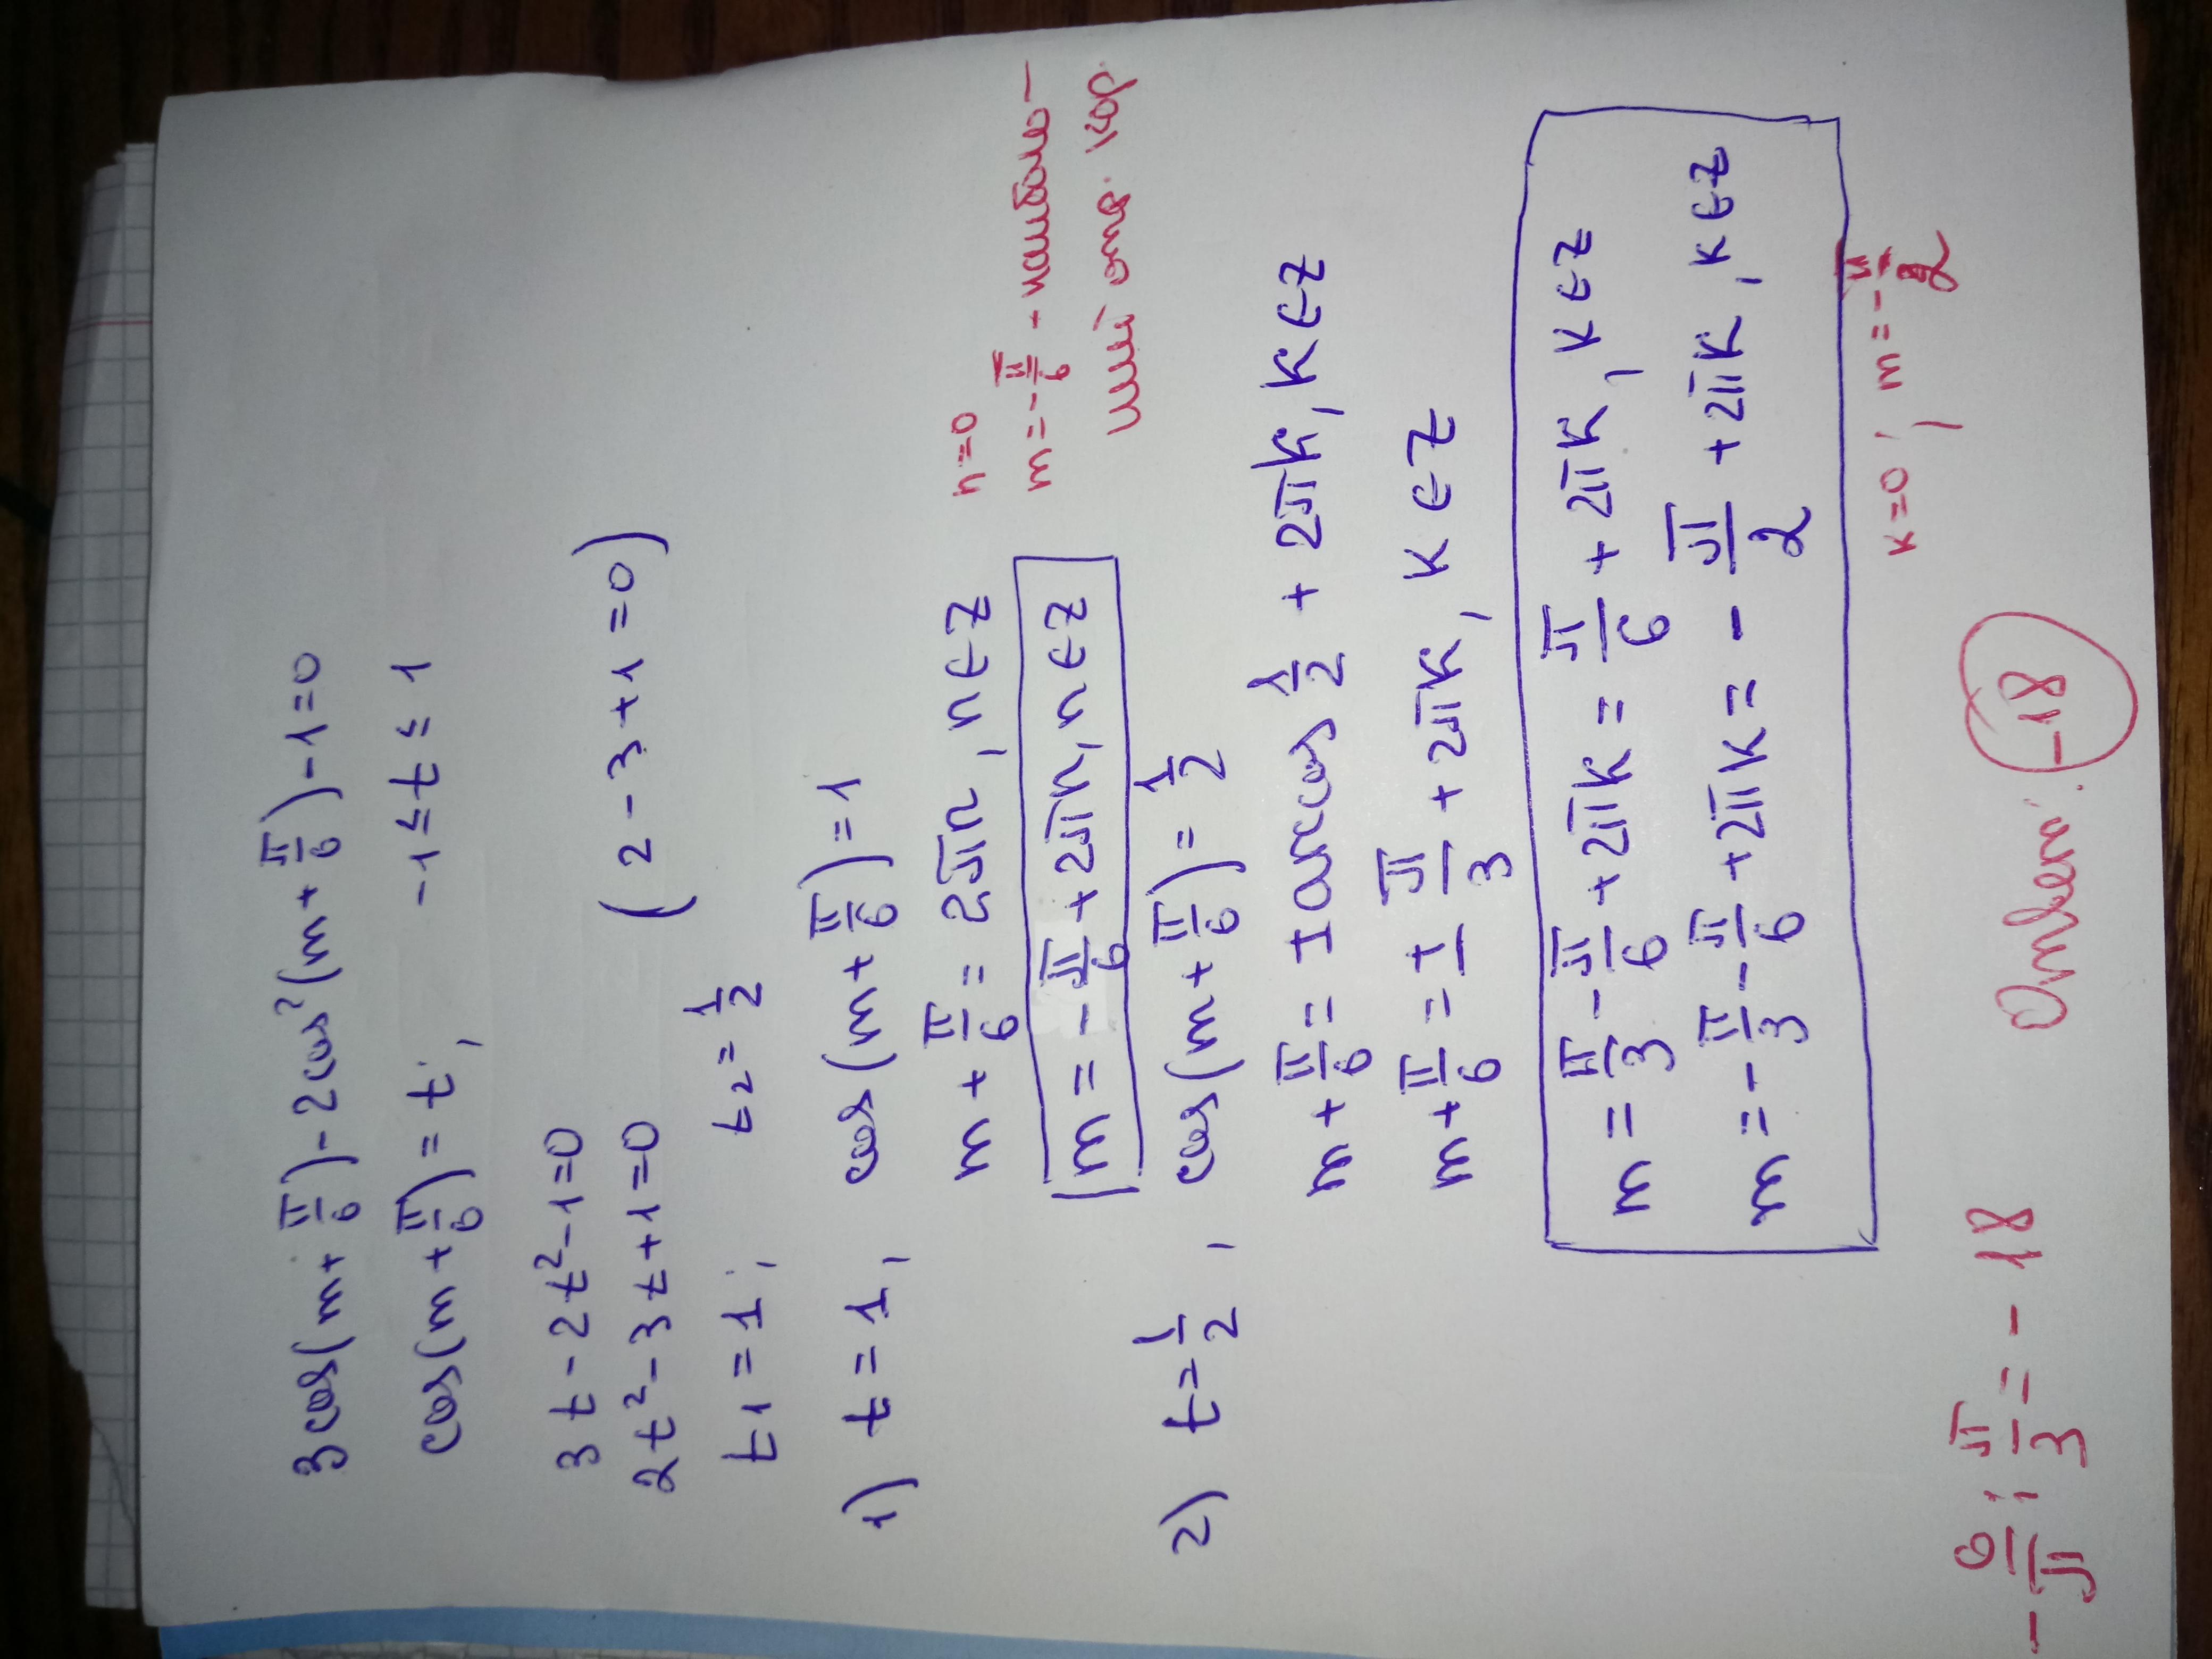 3cos(m+π/6)-2cos²(m+π/6)-1=0
cos(m+π/6)=t, -1≤t≤1
3t-2t²-1=0
2t²-3t+1=0 (2-3+1=0)
t1=1; t2=1/2
1) t=1, cos(m+π/6)=1
m+π/6=2πn, n∈Z
n=0
|m=-π/6+2πn, n∈Z
m=-π/6 - наибольший отр. кор.
2) t=1/2, cos(m+π/6)=1/2
m+π/6=±arccos 1/2+2πk, k∈Z
m+π/6=±π/3+2πk, k∈Z
m=π/3-π/6+2πk=π/6+2πk, k∈Z
m=-π/3-π/6+2πk=-π/2+2πk, k∈Z
k=0; m=-π/2
-6/π : π/3=-18 Ответ: -18